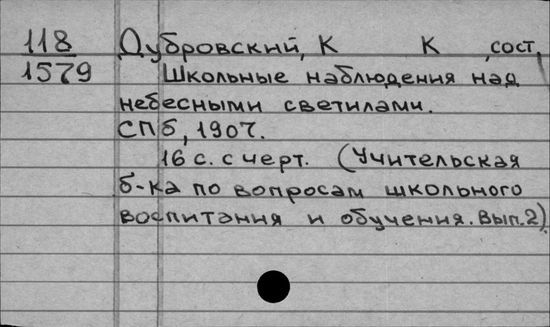 118 Дубровский, К К сост,
1579 Школьные наблюдения над
небесными светилами.
СПб, 1907.
16 с. с черт. (Учительская
б-ка по вопросам школьного
воспитания и обучения. Вып.2)